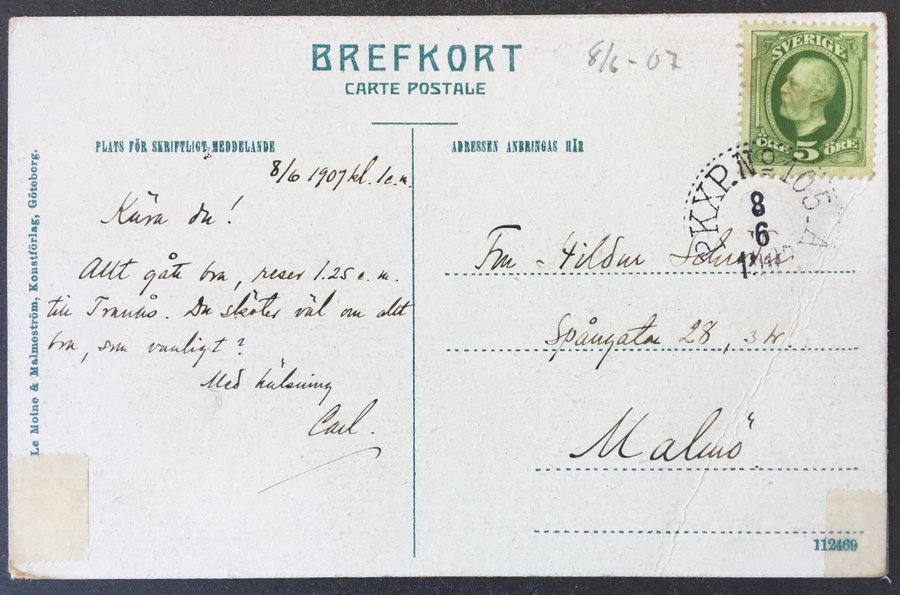 BREFKORT
CARTE POSTALE
8/6-07
SVERIGE
ÖRE 5 ÖRE
PLATS FÖR SKRIFTLIGT MEDDELANDE
ADRESSEN ANBRINGAS HÄR
PKXP. No 105-A
8
6
8/6 1907 kl. 1 e.m.
Kära du!
Allt gått bra, reser 1.25 e.m.
till Tranås. Du sköter väl om allt
bra, som vanligt?
Med hälsning
Carl.
Fru Hildur
Spångatan 28, 3 tr.
Malmö
Le Moine & Malmeström, Konstförlag, Göteborg.
112469